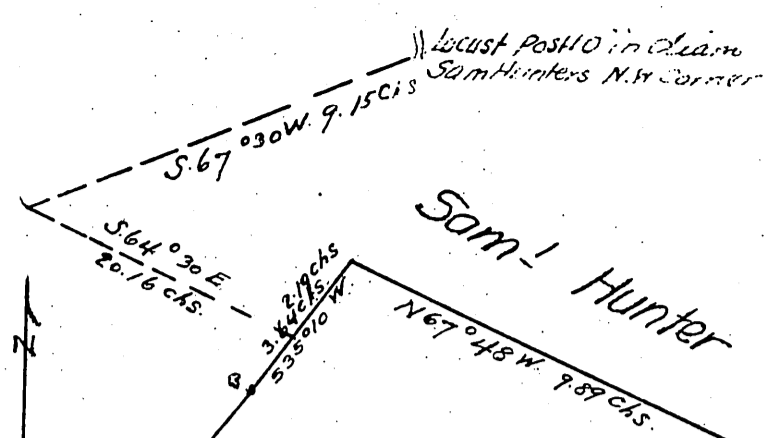 Locust Post 10 in diam
Sam Hunters N.W Corner
S.67°30W. 9.15 Chs
S.64°30 E.
20.16 chs.
Sam! Hunter
2.19 chs
S35°10 W.
N67°48 W. 9.89 Chs.
B
N